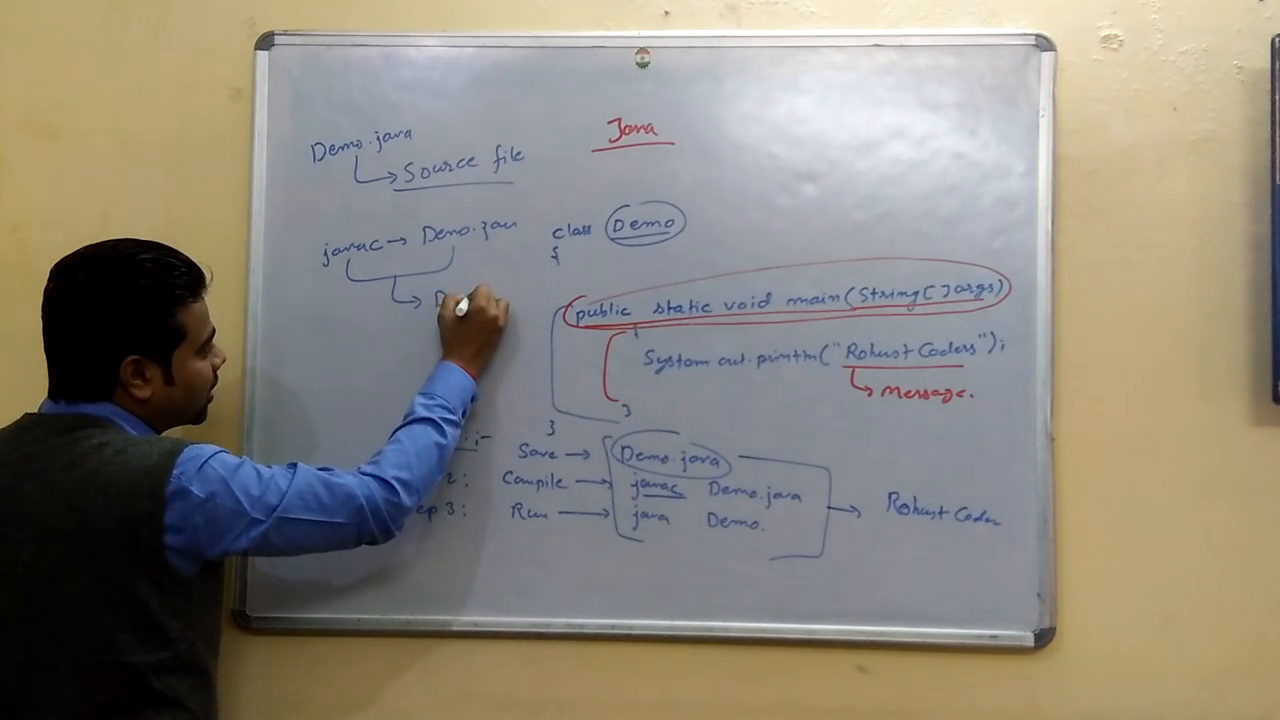 Java
Demo.java
Source file
javac → Demo.jav
D
class Demo
{
public static void main(String[]args)
{
System.out.println("Robust Coders");
Message.
}
}
:-
Save → Demo.java
2: Compile → javac Demo.java
ep 3: Run → java Demo.
→ Robust Coder